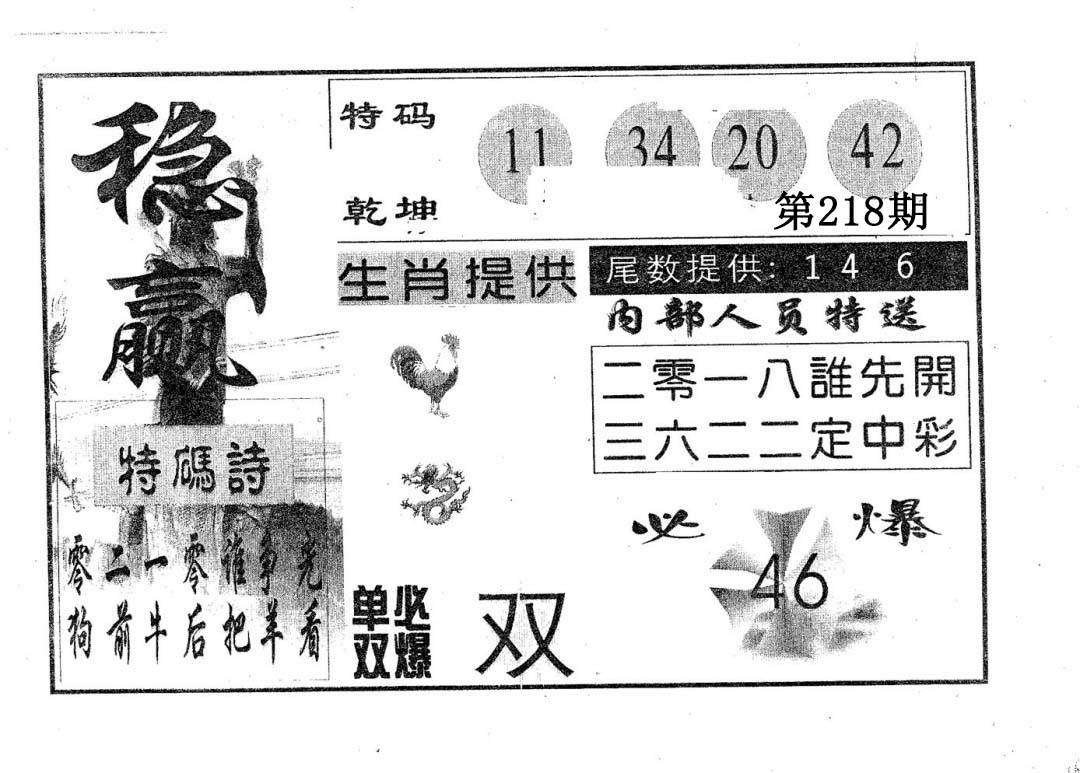 稳赢
特码 11 34 20 42
乾坤
第218期
生肖提供
尾数提供: 1 4 6
内部人员特送
二零一八誰先開
三六二二定中彩
特碼詩
零二一零谁争先
狗前牛后把羊看
必爆
46
单双必爆
双